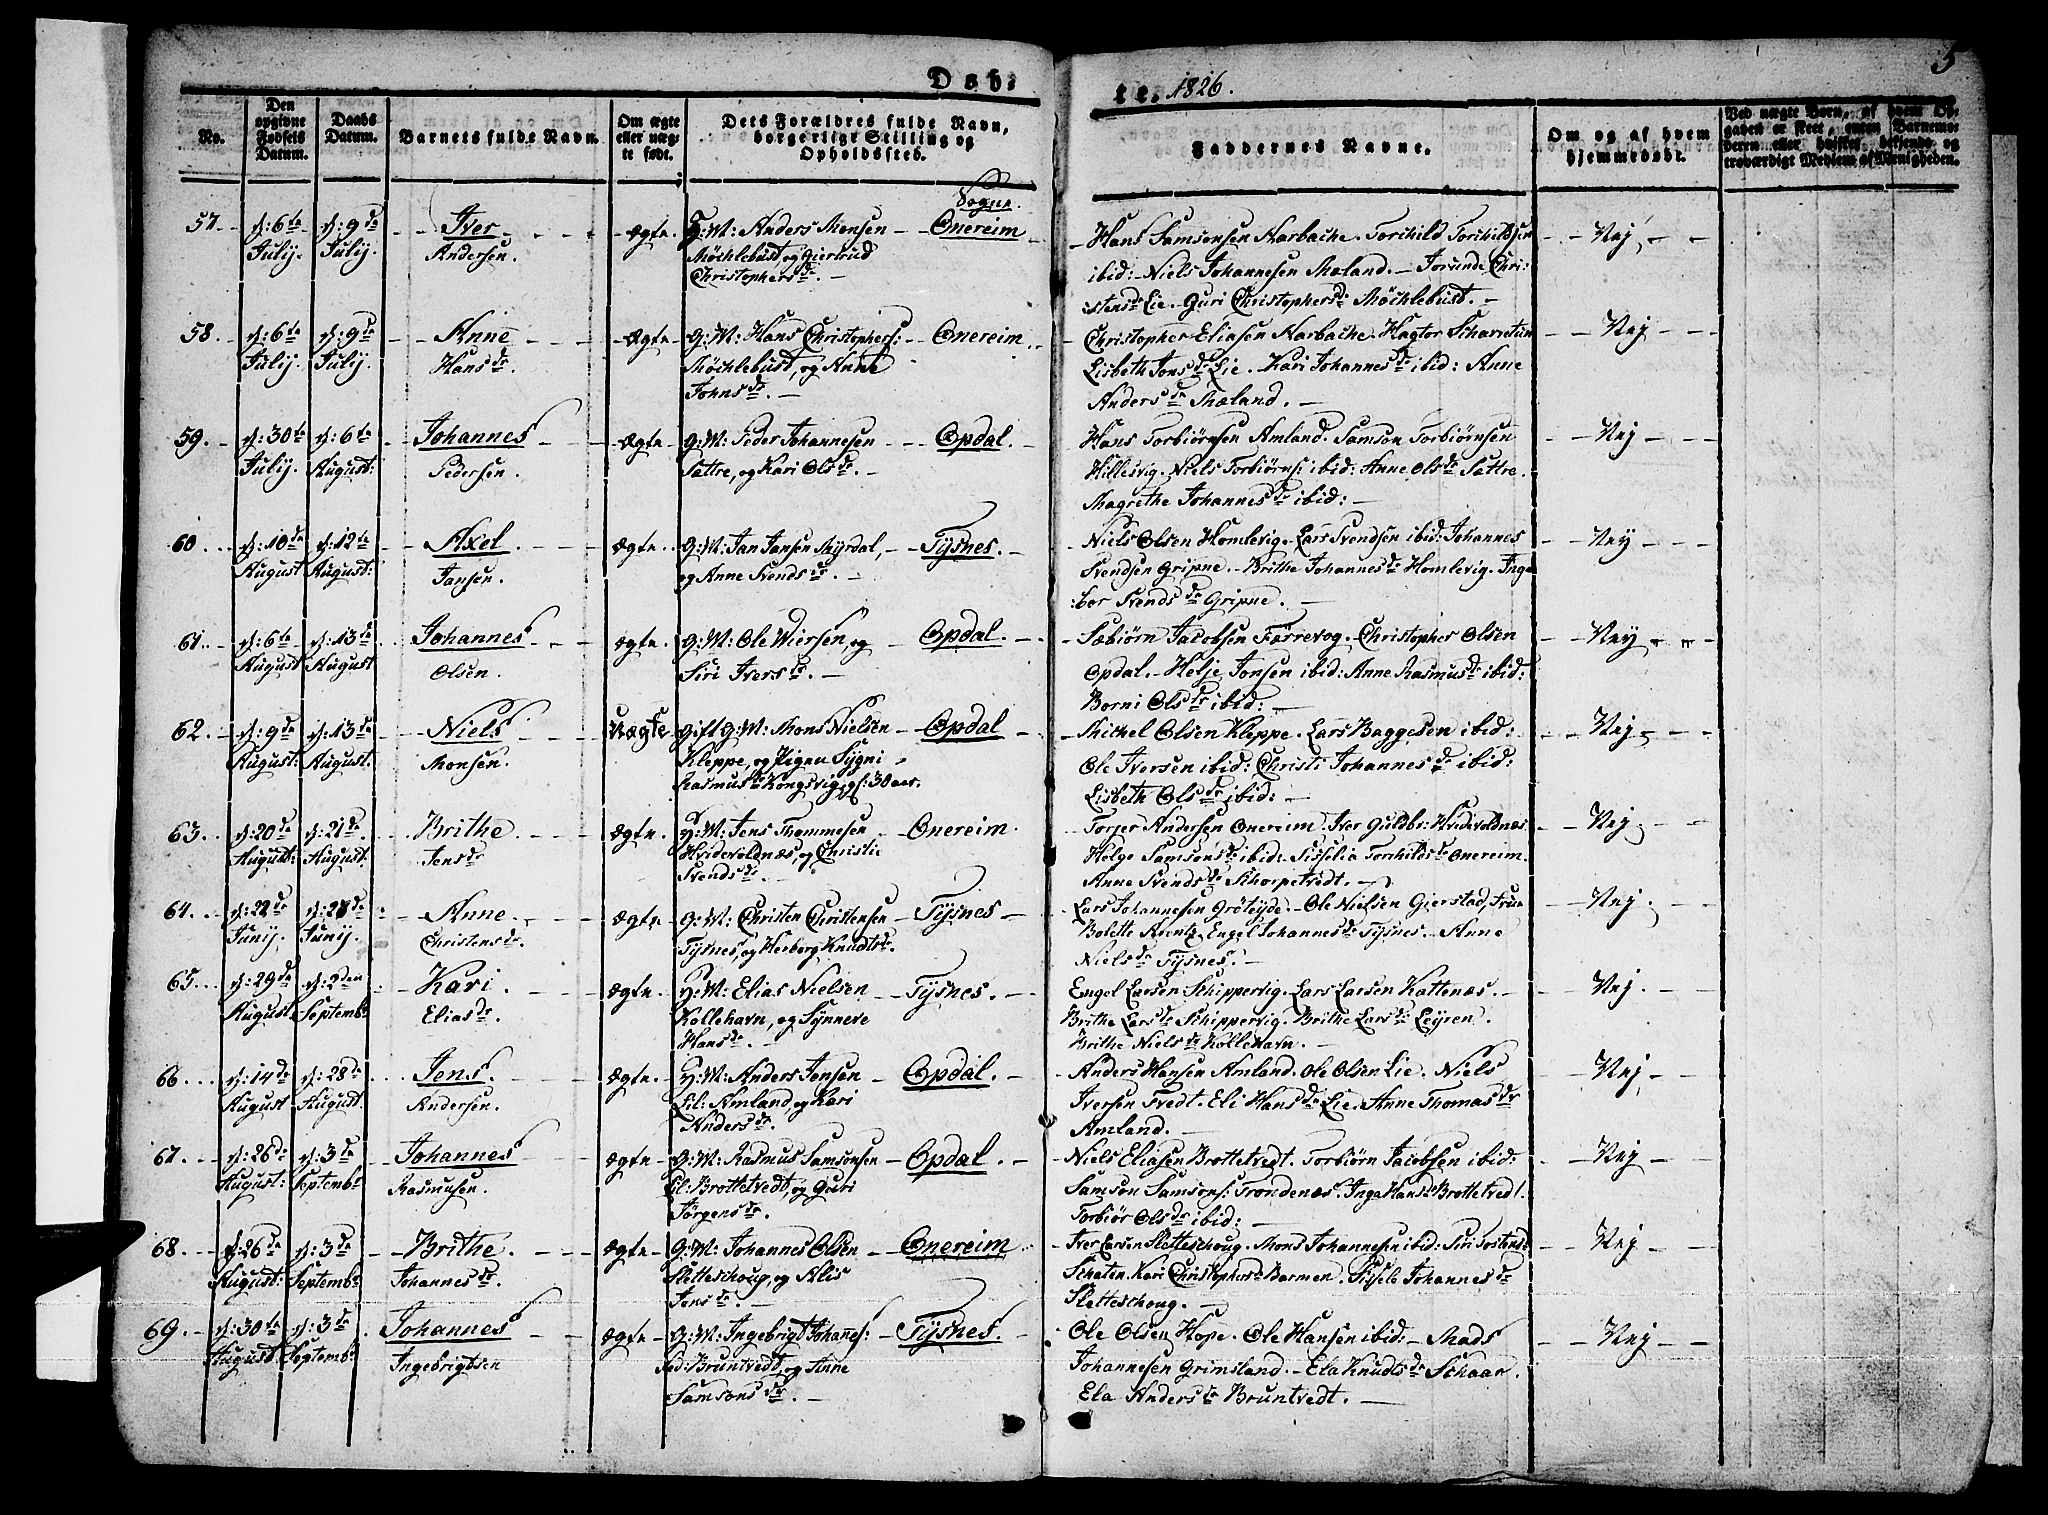 Døb-
te. 1826.
5
No.
Den opgivne Fødsels Datum.
Daabs Datum.
Barnets fulde Navn.
Om ægte eller uægte født.
Dets Forældres fulde Navn, borgerlige Stilling og Opholdssted.
Faddernes Navne.
Om og af hvem hjemmedøbt.
Ved uægte Børn, af hvem Opgaven er skeet, enten Barnemoderen eller hvilket bekjendt og troværdigt Medlem af Menigheden.
Sogne.
57. d: 6te July. d: 9de July. Iver Andersen. Ægte. G: M: Anders Monsen Onereim
Möchlebust, og Giertrud
Christophersdr.
Hans Samsonsen Aarbache. Torchild Torchildsen
ibid: Niels Johannesen Mæland. Jorunde Chri-
stensdr Lie. Guri Christophersdr Möchlebust. Nej
58. d: 6te July. d: 9de July. Anne Hansdr. Ægte G: M: Hans Christophers: Onereim
Möchlebust, og Anne
Johnsdr.
Christopher Eliasen Aarbache. Hagtor Scharretun
Lisbeth Jonsdr Lie. Kari Johannesdr ibid: Anne
Andersdr Mæland. Nej
59. d: 30te July. d: 6te August: Johannes Pedersen. Ægte G: M: Peder Johannesen Opdal.
Sattre, og Kari Olsdr.
Hans Torbiörnsen Amland. Samson Torbiörnsen
Hillesvig. Niels Torbiörns: ibid: Anne Olsdr Sattre.
Magrethe Johannesdr ibid: Nej
60. d: 10de August d: 12te August: Axel Jansen. Ægte. G: M: Jan Jansen Myrdal, Tysnes.
og Anne Svendsdr.
Niels Olsen Homlevig. Lars Svendsen ibid: Johannes
Svendsen Gripne. Brithe Johannesdr Homlevig. Inge
bor Svendsdr Gripne. Nej
61. d: 6te August d: 13de August Johannes Olsen. Ægte. G: M: Ole Wiersen, og Opdal.
Siri Iversdr.
Sæbiörn Jacobsen Færrevog. Christopher Olsen
Opdal. Helje Jonsen ibid: Anne Rasmusdr ibid:
Borni Olsdr ibid: Nej
62 d: 9de August: d: 13de August. Niels Monsen. Uægte gift G: M: Mons Nielsen Opdal
Kleppe, og Pigen Sygni
Rasmusdr Kongsvig, gl: 30 aar.
Michel Olsen Kleppe. Lars Baggesen ibid:
Ole Iversen ibid: Christi Johannesdr ibid:
Lisbeth Olsdr ibid: Nej
63. d: 20de August: d: 21de August. Brithe Jensdr Ægte. H: M: Jens Thommesen Onereim.
Hvidevoldnæs, og Christie
Svendsdr.
Torjer Andersen Onereim. Iver Guldbr: Hvidevoldnæs
Helge Samsonsdr ibid: Sisselia Torchildsdr Onereim.
Anne Svendsdr Schorpetvedt. Nej.
64. d: 22de Junij. d: 28de Junij. Anne Christensdr. Ægte G: M: Christen Christensen Tysnes
Tysnes, og Herborg Knudtsdr.
Lars Johannesen Gröteyde. Ole Nielsen Gierstad, Frue
Bolette Arentz, Engel Johannesdr Tysnes. Anne
Nielsdr Tysnes. Nej.
65. d: 29de August. d: 2den Septembr Kari. Eliasdr. Ægte. H: M: Elias Nielsen Tysnes.
Kollehavn, og Synneve
Hansdr.
Engel Larsen Schippervig. Lars Larsen Kattenæs.
Brithe Larsdr Schippervig. Brithe Larsdr Leyren.
Brithe Nielsdr Kollehavn. Nej.
66. d: 14de August d: 28de August. Jens. Andersen. Ægte. H: M: Anders Jensen Opdal.
Lil: Amland og Kari
Andersdr.
Anders Hansen Amland. Ole Olsen Lie. Niels
Iversen Tvedt. Eli Hansdr Lie. Anne Thomasdr
Amland. Nej
67. d: 26de August: d: 3de Septembr Johannes Rasmusen. Ægte G: M: Rasmus Samsonsen Opdal.
Lil: Brottetvedt, og Guri
Jörgensdr.
Niels Eliasen Brottetvedt. Torbiörn Jacobsen ibid:
Samson Samsons: Trondenæs. Inga Hansdr Brottetvedt.
Torbiör Olsdr ibid: Nej
68. d: 26de August: d: 3de Septembr Brithe. Johannesdr. Ægte G: M: Johannes Olsen Onereim
Sletteschoug, og Alis
Jonsdr.
Iver Larsen Sletteschoug. Mons Johannesen ibid: Siri Tostensdr
Schaten. Kari Christophersdr Barmen. Sissele Johannesdr
Sletteschoug. Nej
69. d: 30te August. d: 3de Septembr Johannes Ingebrigtsen Ægte G: M: Ingebrigt Johannes: Tysnes.
Sad: Bruntvedt, og Anne
Samsonsdr.
Ole Olsen Hope. Ole Hansen ibid: Mads
Johannesen Grimsland. Ela Knudtsdr Schaar
Ela Andersdr Bruntvedt. Nej